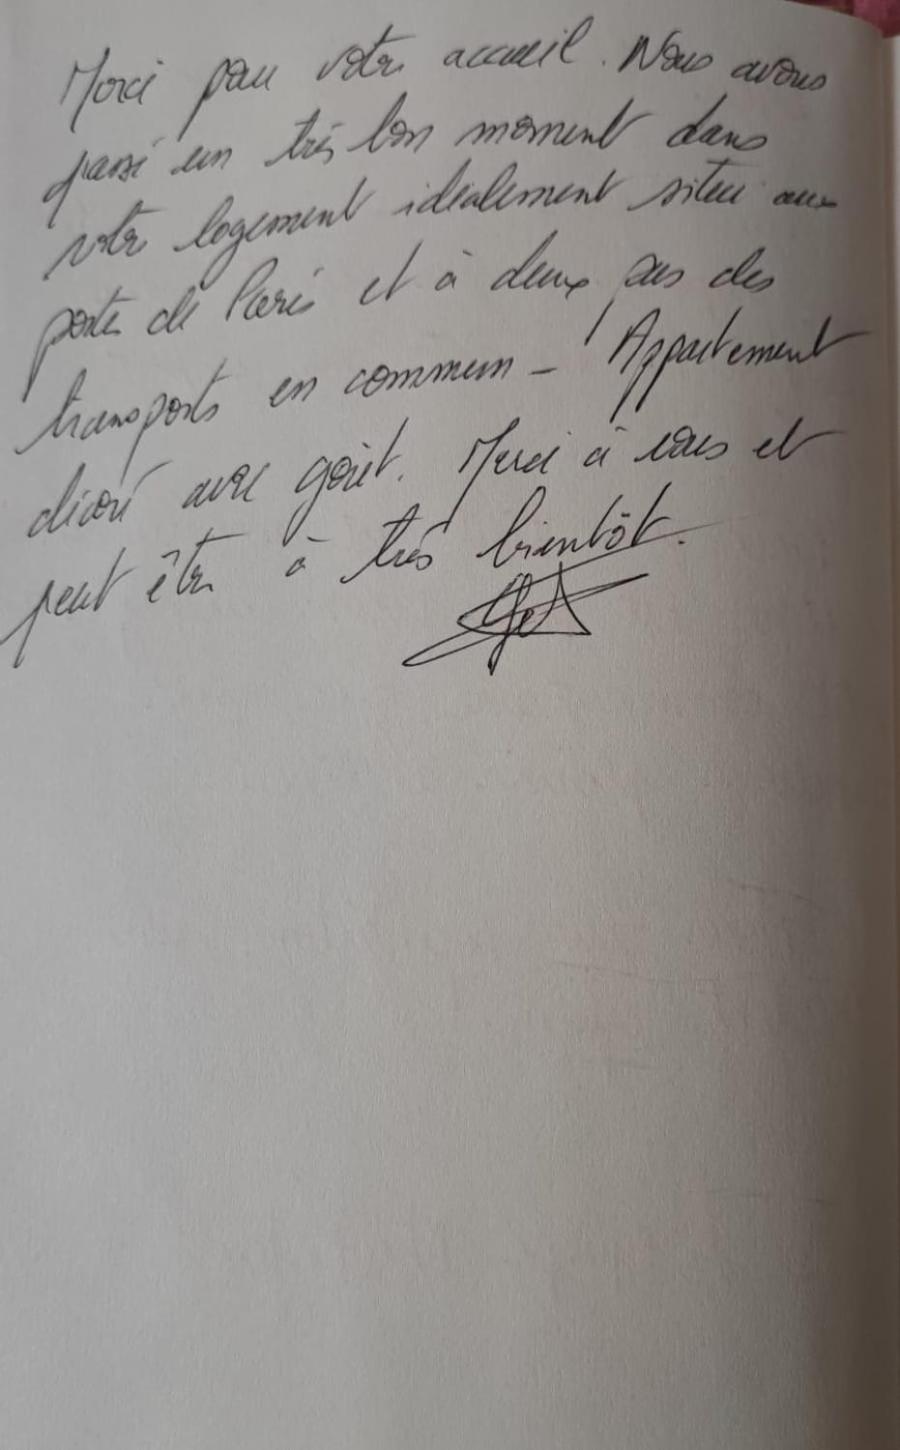 Merci pour votre accueil. Nous avons
passé un très bon moment dans
votre logement idéalement situé aux
portes de Paris et à deux pas des
transports en commun - Appartement
décoré avec goût. Merci à vous et
peut être à très bientôt.